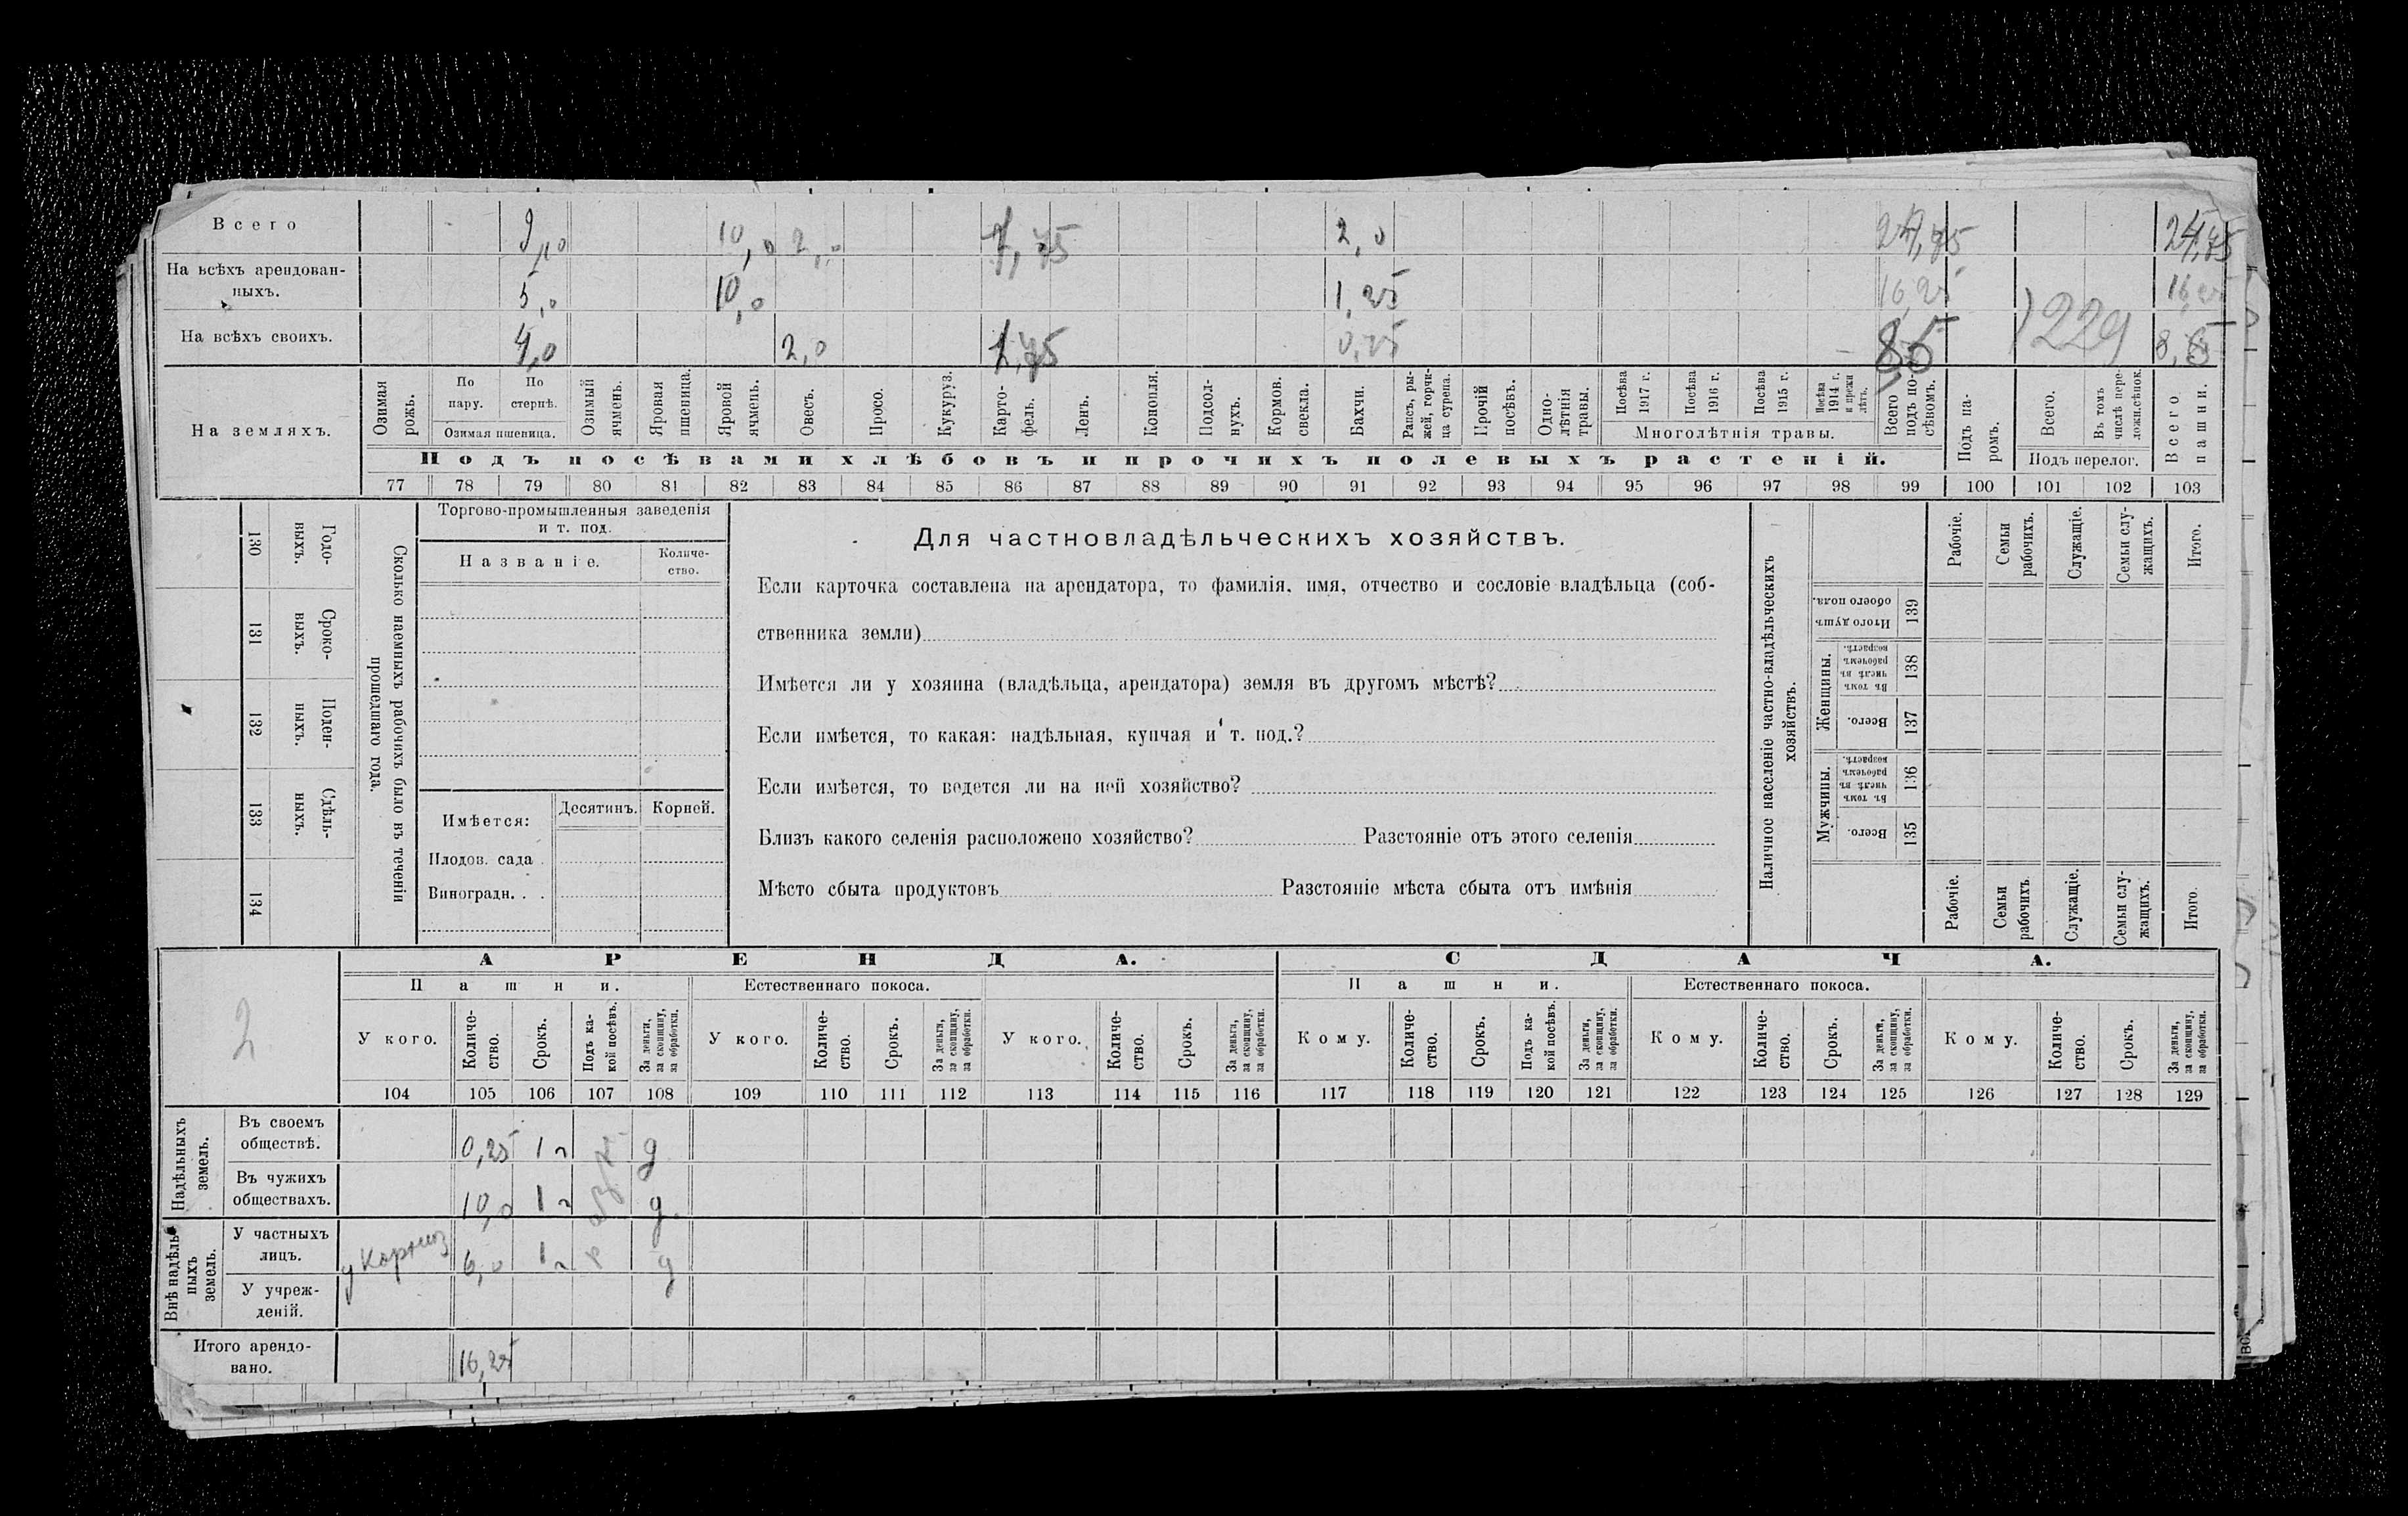 Всего 9,0 10,0 2,0 1,75 2,0 24,75 24,75
На всѣхъ арендован-
ныхъ. 5,0 10,0 1,25 16,25 16,25
На всѣхъ своихъ. 4,0 2,0 1,75 0,75 8,5 1229 8,5
На земляхъ.
Озимая рожь.
По пару.
По стернѣ.
Озимая пшеница.
Озимый ячмень.
Яровая пшеница.
Яровой ячмень.
Овесъ.
Просо.
Кукуруз.
Карто-фель.
Ленъ.
Конопля.
Подсол-нухъ.
Кормов. свекла.
Бахчи.
Рапсъ, ры-жей, горчи-ца сурепа.
Прочій посѣвъ.
Одно-лѣтнія травы.
Посѣва 1917 г.
Посѣва 1916 г.
Посѣва 1915 г.
Посѣва 1914 г. и прежн лѣтъ.
Многолѣтнія травы.
Всего подъ по-сѣвомъ.
Подъ посѣвами хлѣбовъ и прочихъ полевыхъ растеній.
Подъ па-ромъ.
Всего.
Въ томъ числѣ пере-ложн.сѣнок.
Подъ перелог.
Всего пашни.
77 78 79 80 81 82 83 84 85 86 87 88 89 90 91 92 93 94 95 96 97 98 99 100 101 102 103
130 Годо-выхъ.
131 Сроко-ныхъ.
132 Поден-ныхъ.
133 Сдѣль-ныхъ.
134
Сколько наемныхъ рабочихъ было въ теченіи
прошедшаго года.
Торгово-промышленныя заведенія
и т. под.
Названіе.
Количе-ство.
Имѣется:
Десятинъ. Корней.
Плодов. сада .
Виноградн. . .
Для частновладѣльческихъ хозяйствъ.
Если карточка составлена на арендатора, то фамилія, имя, отчество и сословіе владѣльца (соб-
ственника земли)
Имѣется ли у хозяина (владѣльца, арендатора) земля въ другомъ мѣстѣ?
Если имѣется, то какая: надѣльная, купчая и т. под.?
Если имѣется, то ведется ли на ней хозяйство?
Близъ какого селенія расположено хозяйство? Разстояніе отъ этого селенія
Мѣсто сбыта продуктовъ Разстояніе мѣста сбыта отъ имѣнія
Наличное населеніе частно-владѣльческихъ
хозяйствъ.
Рабочіе.
Семьи рабочихъ.
Служащіе.
Семьи слу-жащихъ.
Итого.
Итого душъ обоего пола. 139
Женщины.
Въ томъ числѣ въ рабочемъ возрастѣ. 138
Всего. 137
Мужчины.
Въ томъ числѣ въ рабочемъ возрастѣ. 136
Всего. 135
Рабочіе.
Семьи рабочихъ.
Служащіе.
Семьи слу-жащихъ.
Итого.
2
АРЕНДА.
СДАЧА.
Пашни.
Естественнаго покоса.
Пашни.
Естественнаго покоса.
У кого.
Количе-ство.
Срокъ.
Подъ ка-кой посѣвъ.
За деньги, за скопщину, за обработки.
У кого.
Количе-ство.
Срокъ.
За деньги, за скопщину, за обработки.
У кого.
Количе-ство.
Срокъ.
За деньги, за скопщину, за обработки.
Кому.
Количе-ство.
Срокъ.
Подъ ка-кой посѣвъ.
За деньги, за скопщину, за обработки.
Кому.
Количе-ство.
Срокъ.
За деньги, за скопщину, за обработки.
Кому.
Количе-ство.
Срокъ.
За деньги, за скопщину, за обработки.
104 105 106 107 108 109 110 111 112 113 114 115 116 117 118 119 120 121 122 123 124 125 126 127 128 129
Надѣльныхъ земель.
Въ своемъ
обществѣ. 0,25 1 г д
Въ чужихъ
обществахъ. 10,0 1 г д.
Внѣ надѣль-ныхъ земель.
У частныхъ
лицъ. у 6,0 1 г д
У учреж-
деній.
Итого арендо-
вано. 16,25